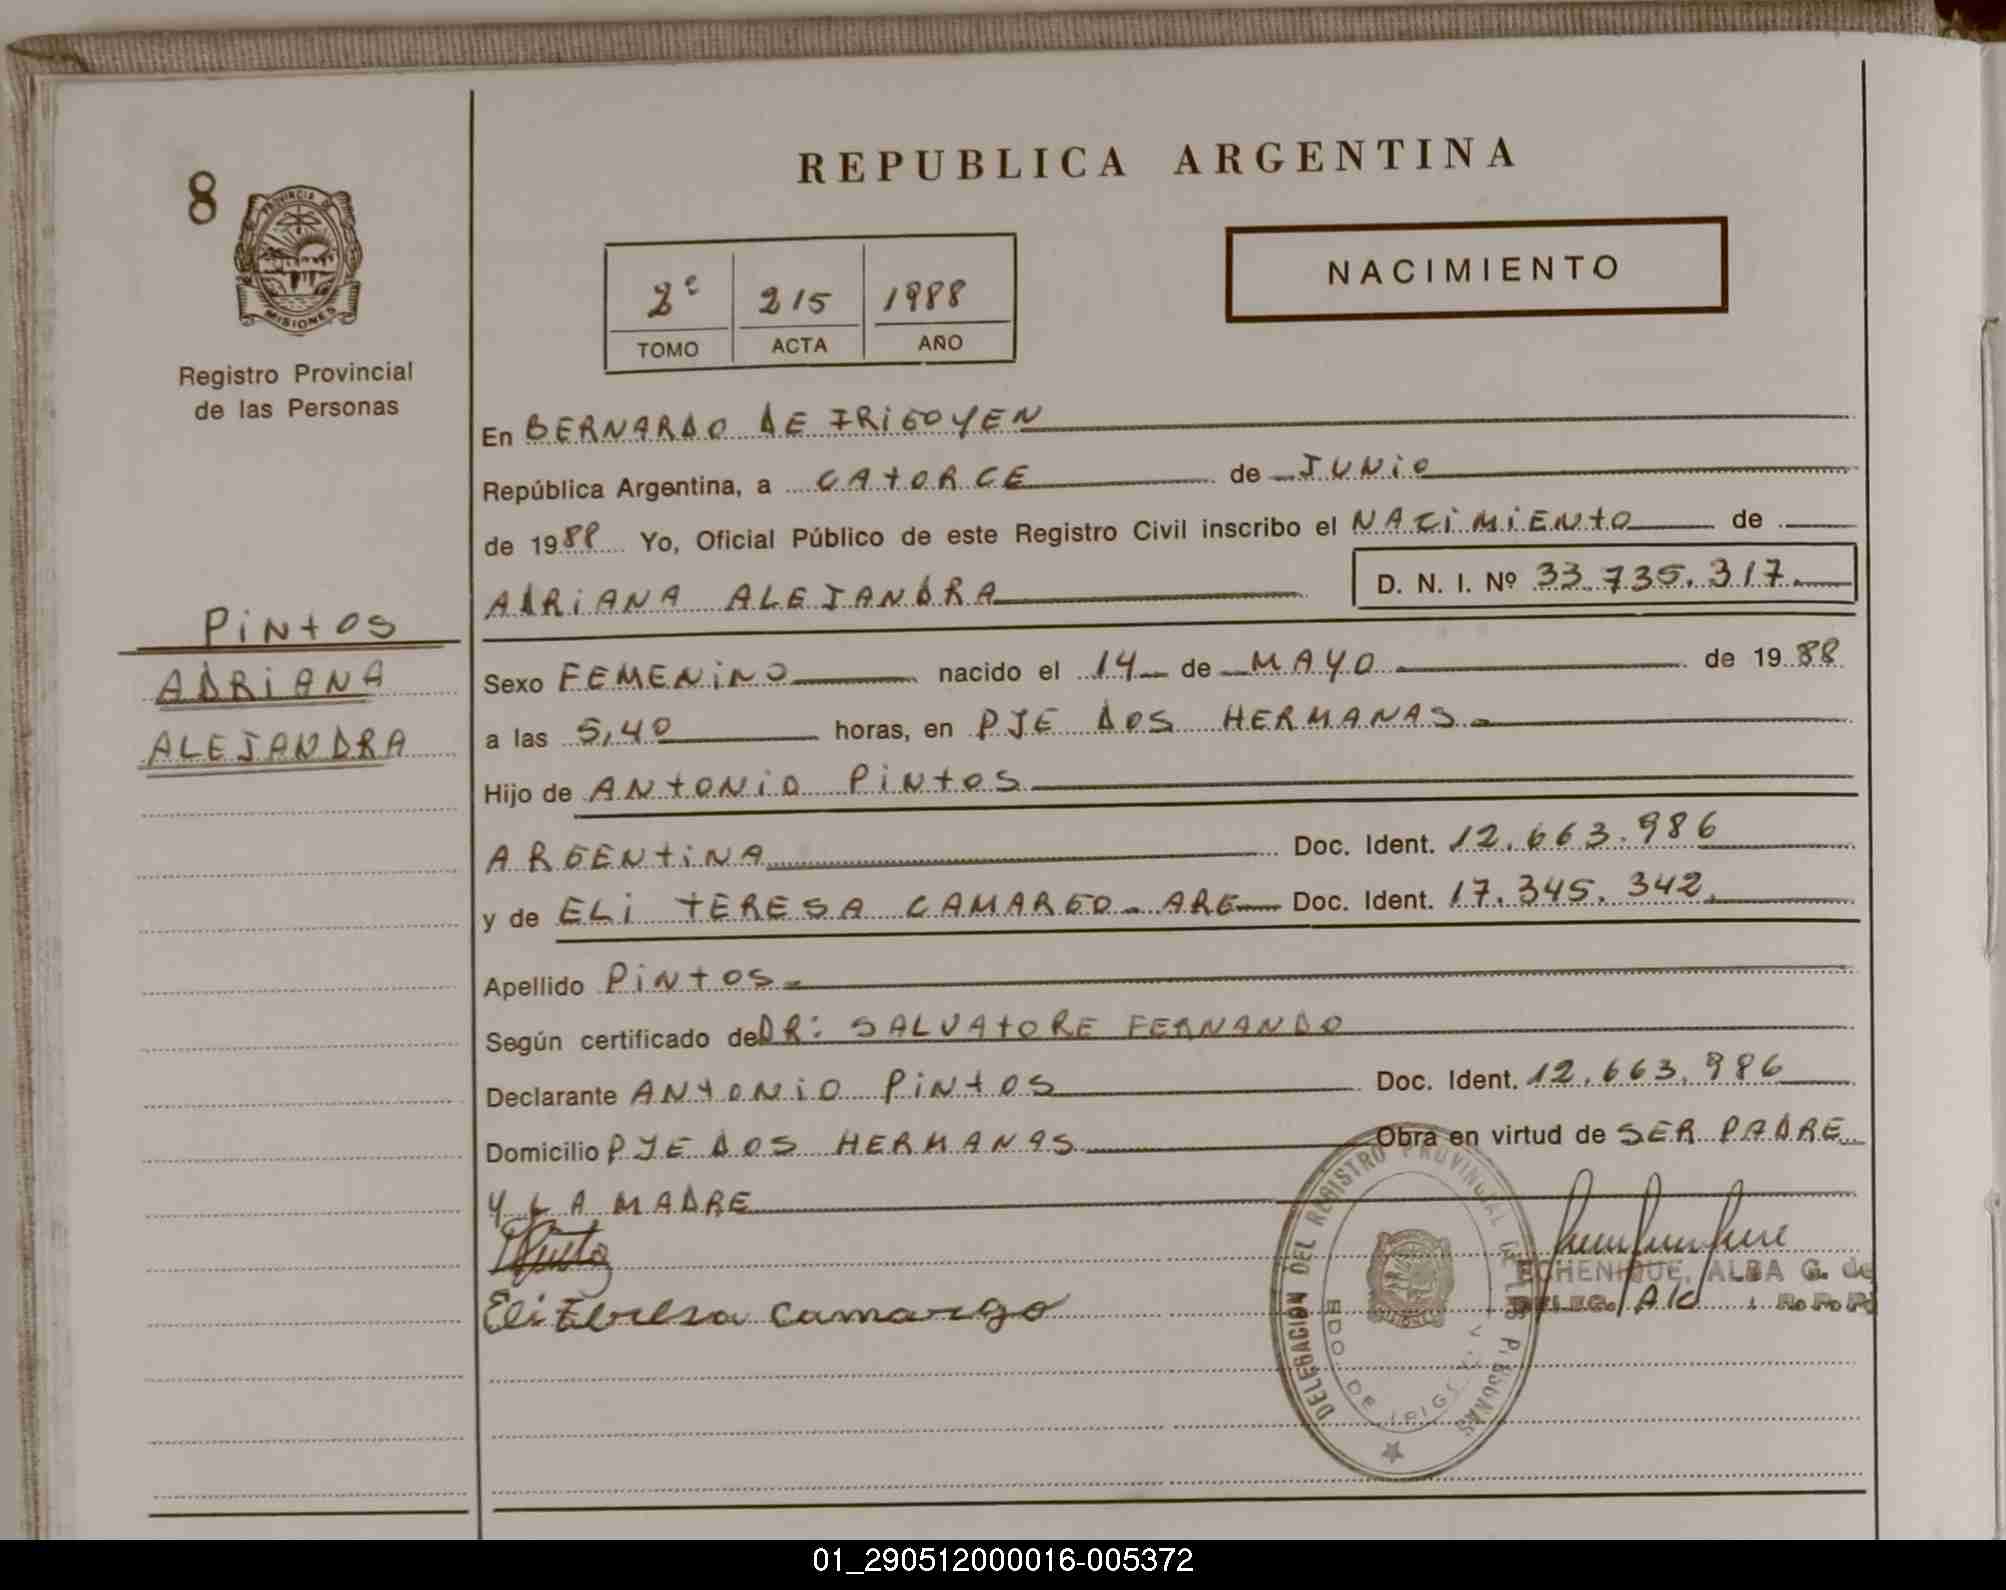 8
PROVINCIA DE
MISIONES
Registro Provincial
de las Personas
PINTOS
ADRIANA
ALEJANDRA
REPUBLICA ARGENTINA
NACIMIENTO
2º 215 1988
TOMO ACTA AÑO
En BERNARDO DE IRIGOYEN
República Argentina, a CATORCE de JUNIO
de 1988 Yo, Oficial Público de este Registro Civil inscribo el NACIMIENTO de
ADRIANA ALEJANDRA D. N. I. Nº 33.735.317.
Sexo FEMENINO nacido el 14 de MAYO de 1988
a las 5,40 horas, en PJE DOS HERMANAS.
Hijo de ANTONIO PINTOS
ARGENTINA Doc. Ident. 12.663.986
y de ELI TERESA CAMARGO - ARG Doc. Ident. 17.345.342.
Apellido PINTOS.
Según certificado de DR: SALVATORE FERNANDO
Declarante ANTONIO PINTOS Doc. Ident. 12.663.986
Domicilio PJE DOS HERMANAS Obra en virtud de SER PADRE
Y LA MADRE
Eli Teresa Camargo
DELEGACION DEL REGISTRO PROVINCIAL DE LAS PERSONAS
BDO. DE IRIGOYEN
MISIONES
ECHENIQUE, ALBA G. de
DELEG. A/C R. P. P.
01_290512000016-005372